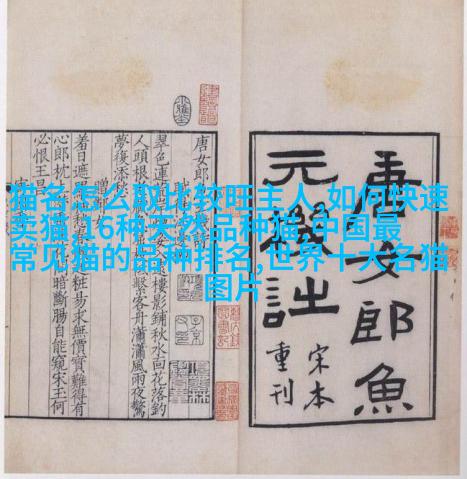 猫名怎么取比较旺主人,如何快速
卖猫,16种天然品种猫,中国最
常见猫的品种排名,世界十大名猫
图片
唐女郎魚
元機詩
宋本
重刊
唐女郎
翠色連
樓影鋪秋水面花落釣
人頭根
繫客舟瀟瀟風雨夜驚
夢復添愁
羞日遮
粧易求無價寶難得有
心郎枕
暗斷腸自能窺宋玉何
必恨王昌